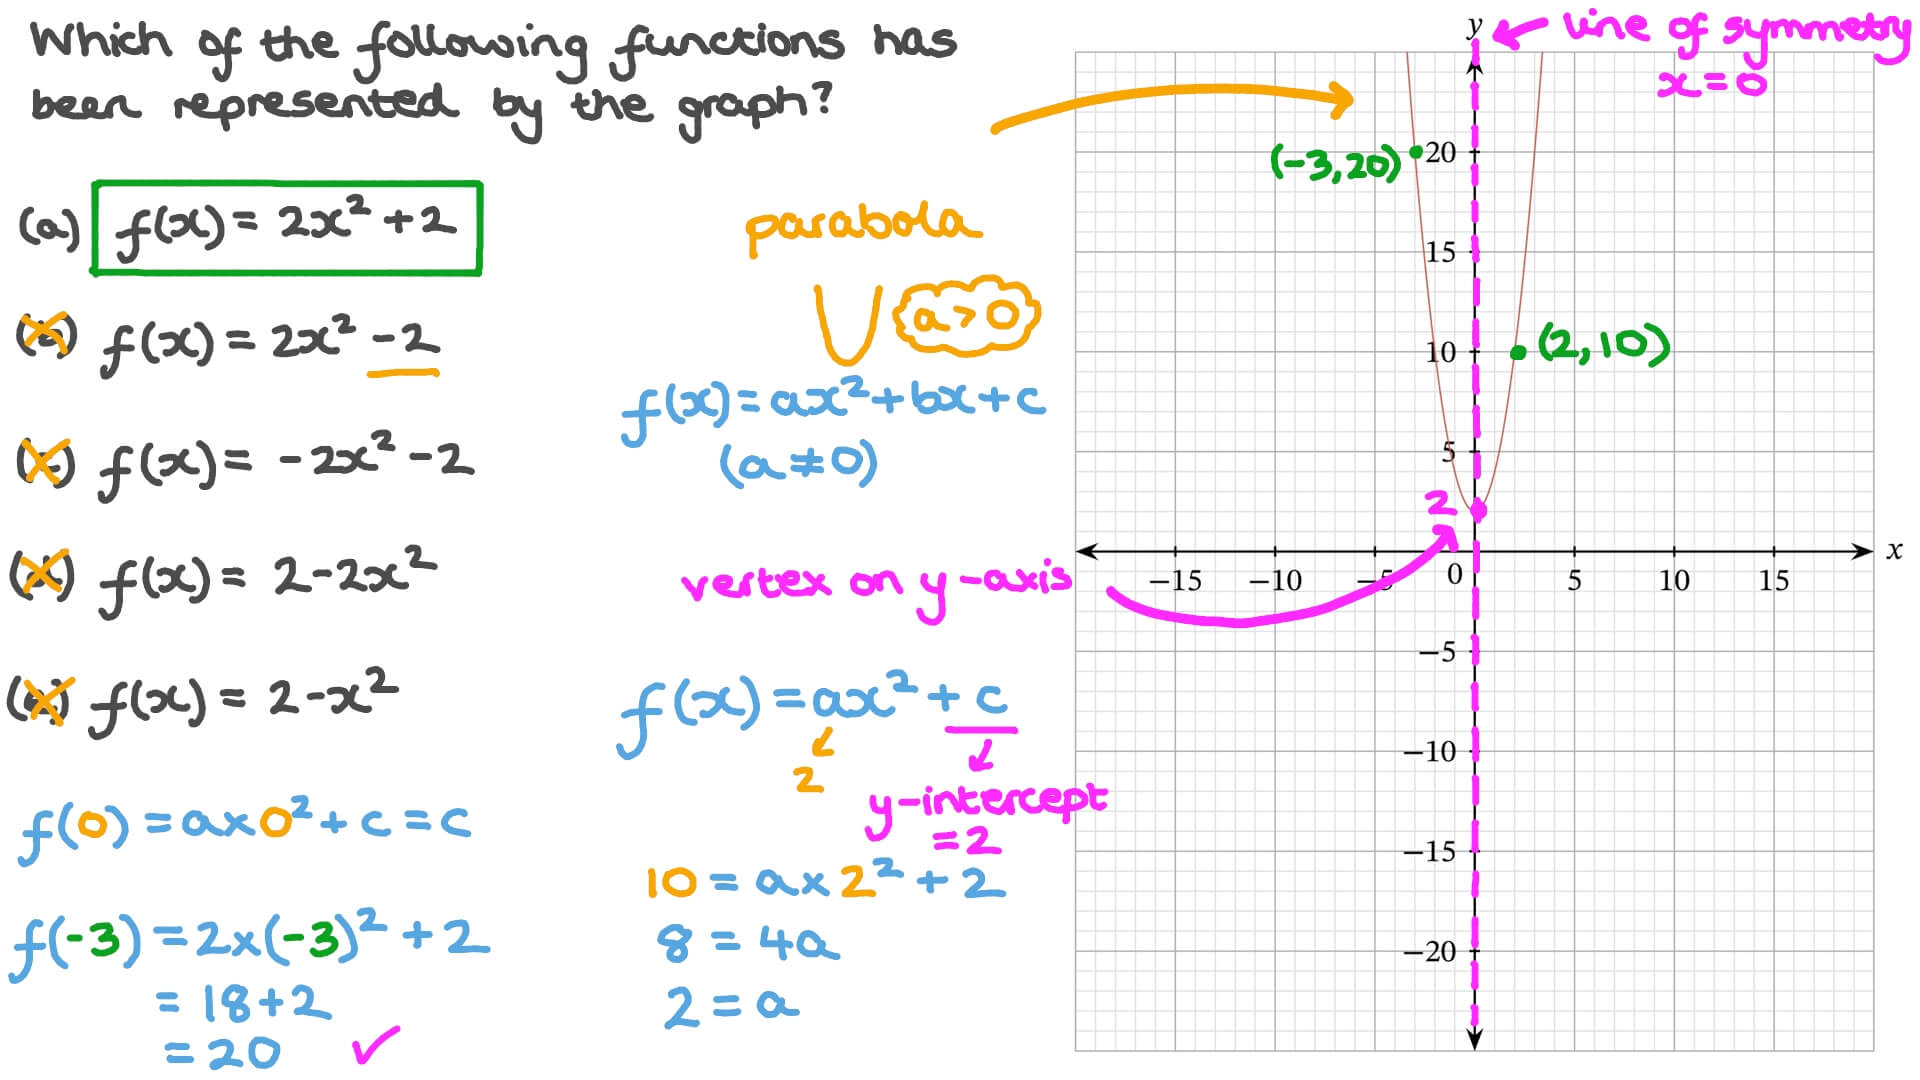 Which of the following functions has
been represented by the graph?
(a) f(x) = 2x² + 2
f(x) = 2x² - 2
f(x) = -2x² - 2
f(x) = 2 - 2x²
f(x) = 2 - x²
f(0) = a x 0² + c = c
f(-3) = 2 x (-3)² + 2
= 18 + 2
= 20 ✓
parabola
a > 0
f(x) = ax² + bx + c
(a ≠ 0)
vertex on y-axis
f(x) = ax² + c
2
y-intercept
= 2
10 = a x 2² + 2
8 = 4a
2 = a
y
line of symmetry
x = 0
(-3, 20)
20
15
10
(2, 10)
5
2
x
−15 −10 −5 0 5 10 15
−5
−10
−15
−20